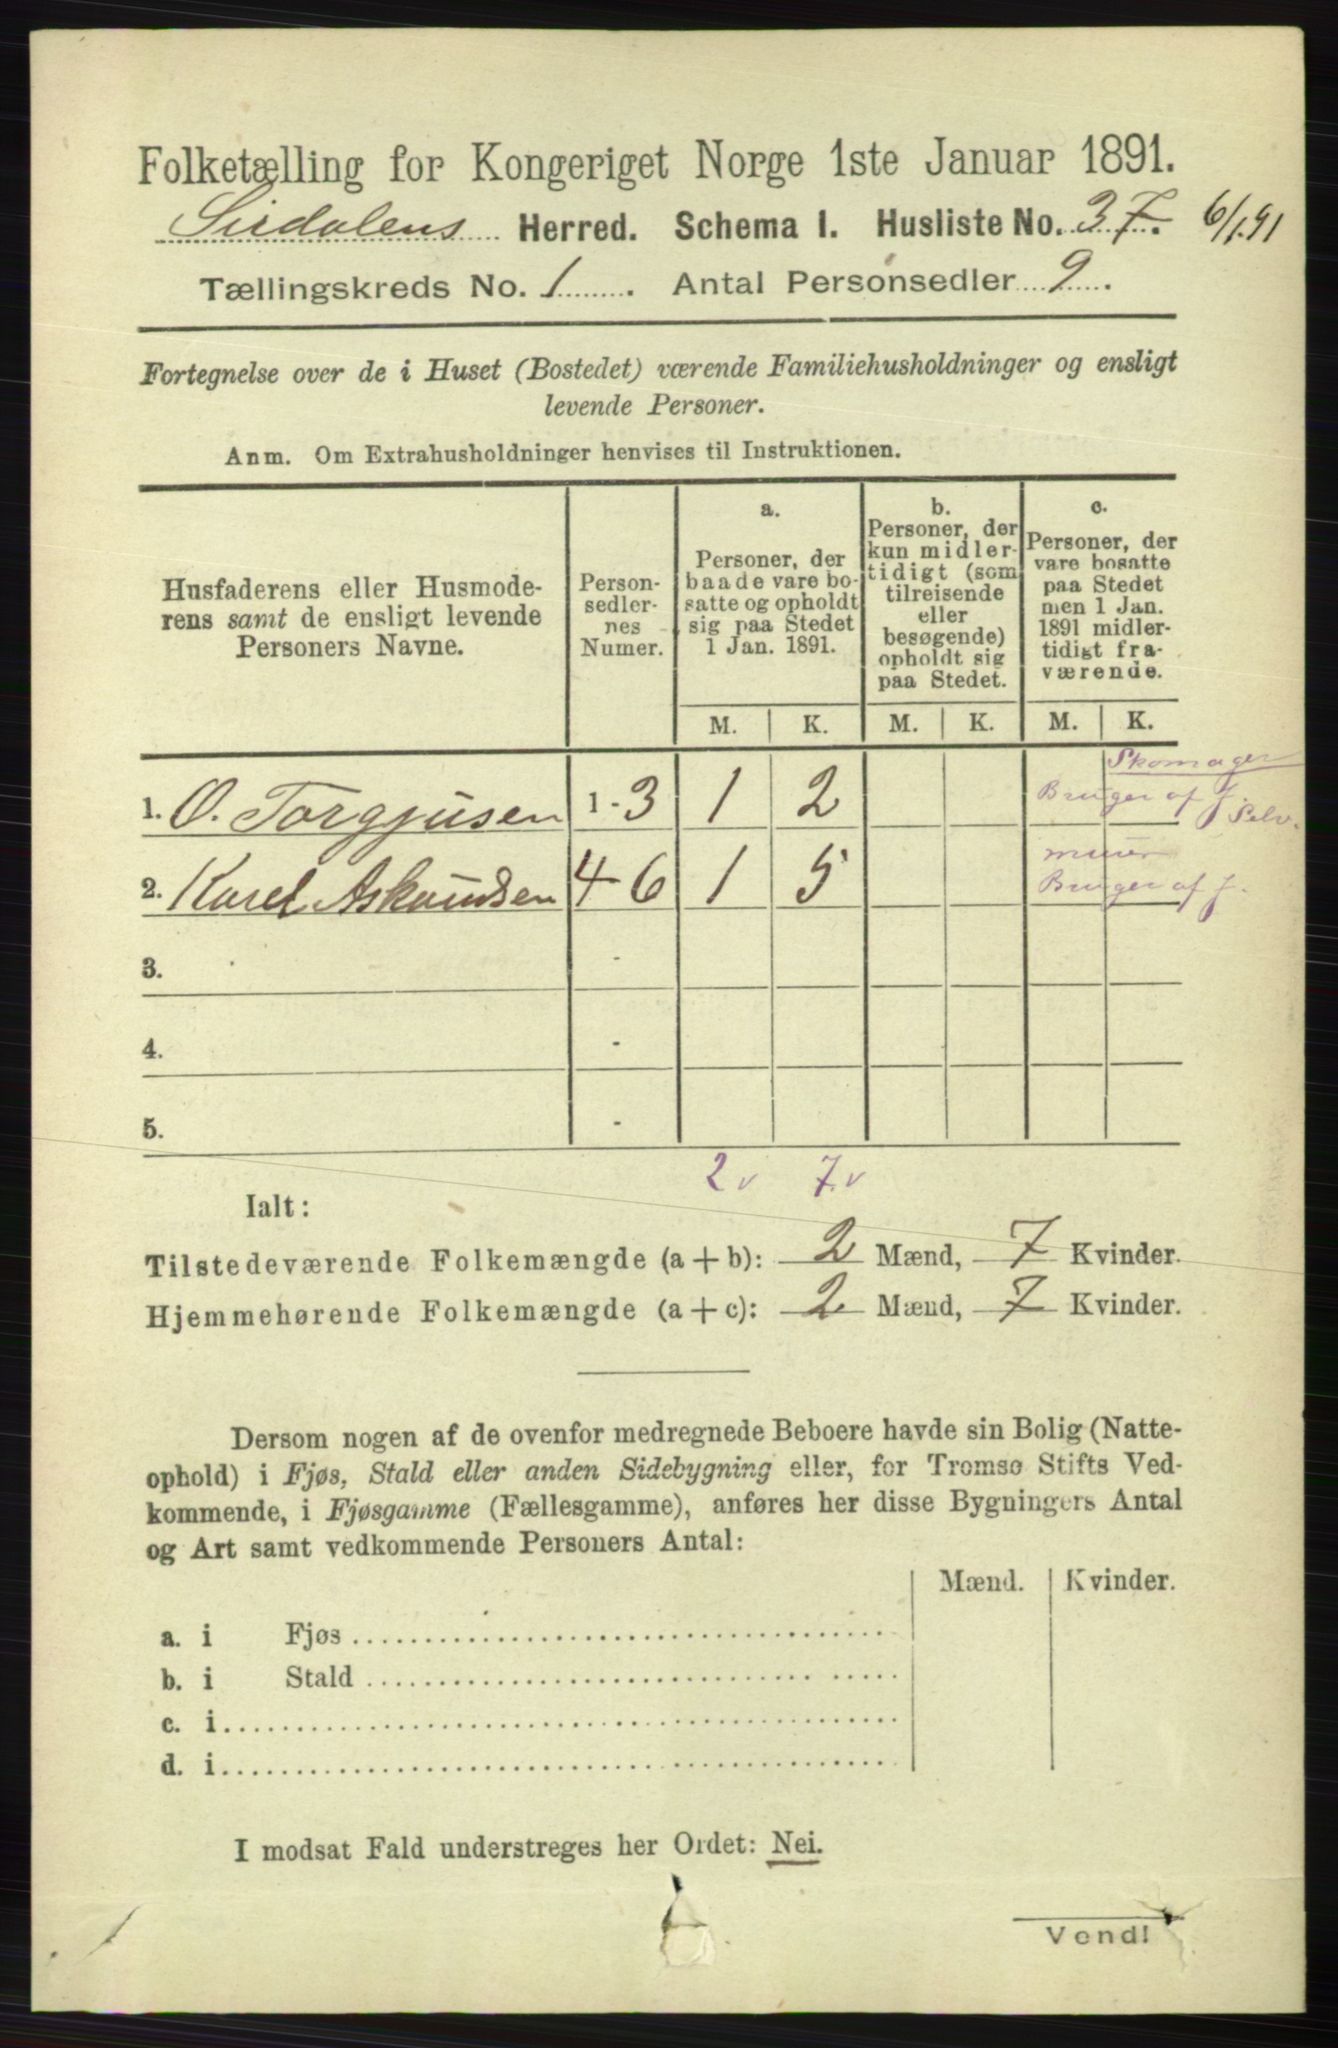 Folketælling for Kongeriget Norge 1ste Januar 1891.
Sirdalens Herred. Schema I. Husliste No. 37. 6/1.91
Tællingskreds No. 1. Antal Personsedler 9.
Fortegnelse over de i Huset (Bostedet) værende Familiehusholdninger og ensligt
levende Personer.
Anm. Om Extrahusholdninger henvises til Instruktionen.
Husfaderens eller Husmode-
rens samt de ensligt levende
Personers Navne.
Person-
sedler-
nes
Numer.
a.
Personer, der
baade vare bo-
satte og opholdt
sig paa Stedet
1 Jan. 1891.
b.
Personer, der
kun midler-
tidigt (som
tilreisende
eller
besøgende)
opholdt sig
paa Stedet.
c.
Personer, der
vare bosatte
paa Stedet
men 1 Jan.
1891 midler-
tidigt fra-
værende.
M. K. M. K. M. K.
Skomager
1. O. Torgjusen 1-3 1 2 Bruger af J. Selv.
2. Karel Askundsen 4-6 1 5 Bruger af J.
3. -
4. -
5. -
2 v 7.v
Ialt:
Tilstedeværende Folkemængde (a+b): 2 Mænd, 7 Kvinder.
Hjemmehørende Folkemængde (a+c): 2 Mænd, 7 Kvinder.
Dersom nogen af de ovenfor medregnede Beboere havde sin Bolig (Natte-
ophold) i Fjøs, Stald eller anden Sidebygning eller, for Tromsø Stifts Ved-
kommende, i Fjøsgamme (Fællesgamme), anføres her disse Bygningers Antal
og Art samt vedkommende Personers Antal:
Mænd. Kvinder.
a. i Fjøs
b. i Stald
c. i
d. i
I modsat Fald understreges her Ordet: Nei.
Vend!